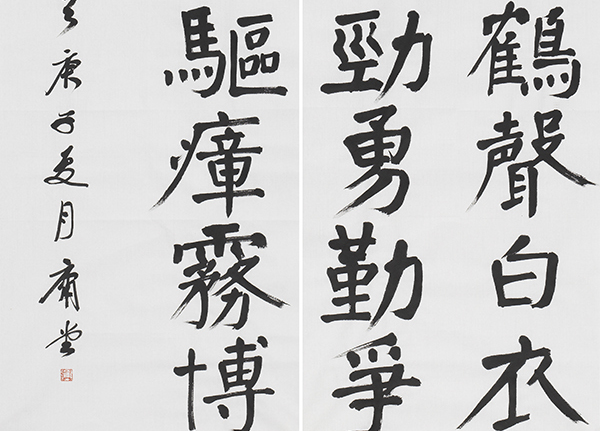 鶴聲白衣
勁勇勤爭
驅瘴霧博
庚子夏月庸堂